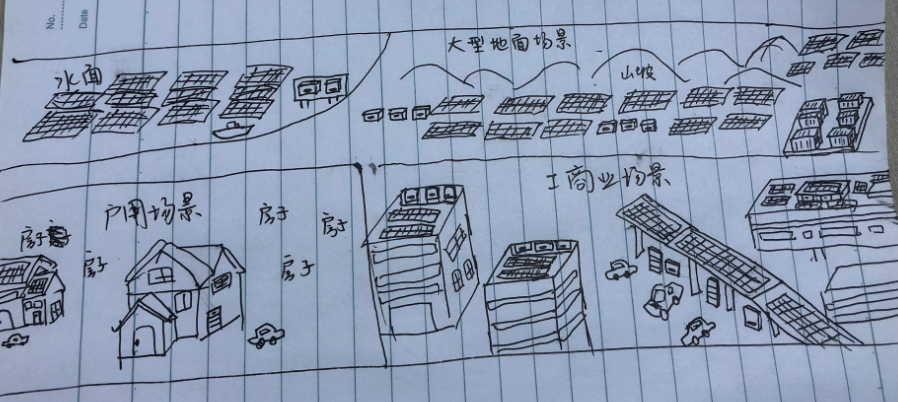 No.
Date
水面
大型地面场景
山坡
户用场景
工商业场景
房子
房子
房子
房子
房子